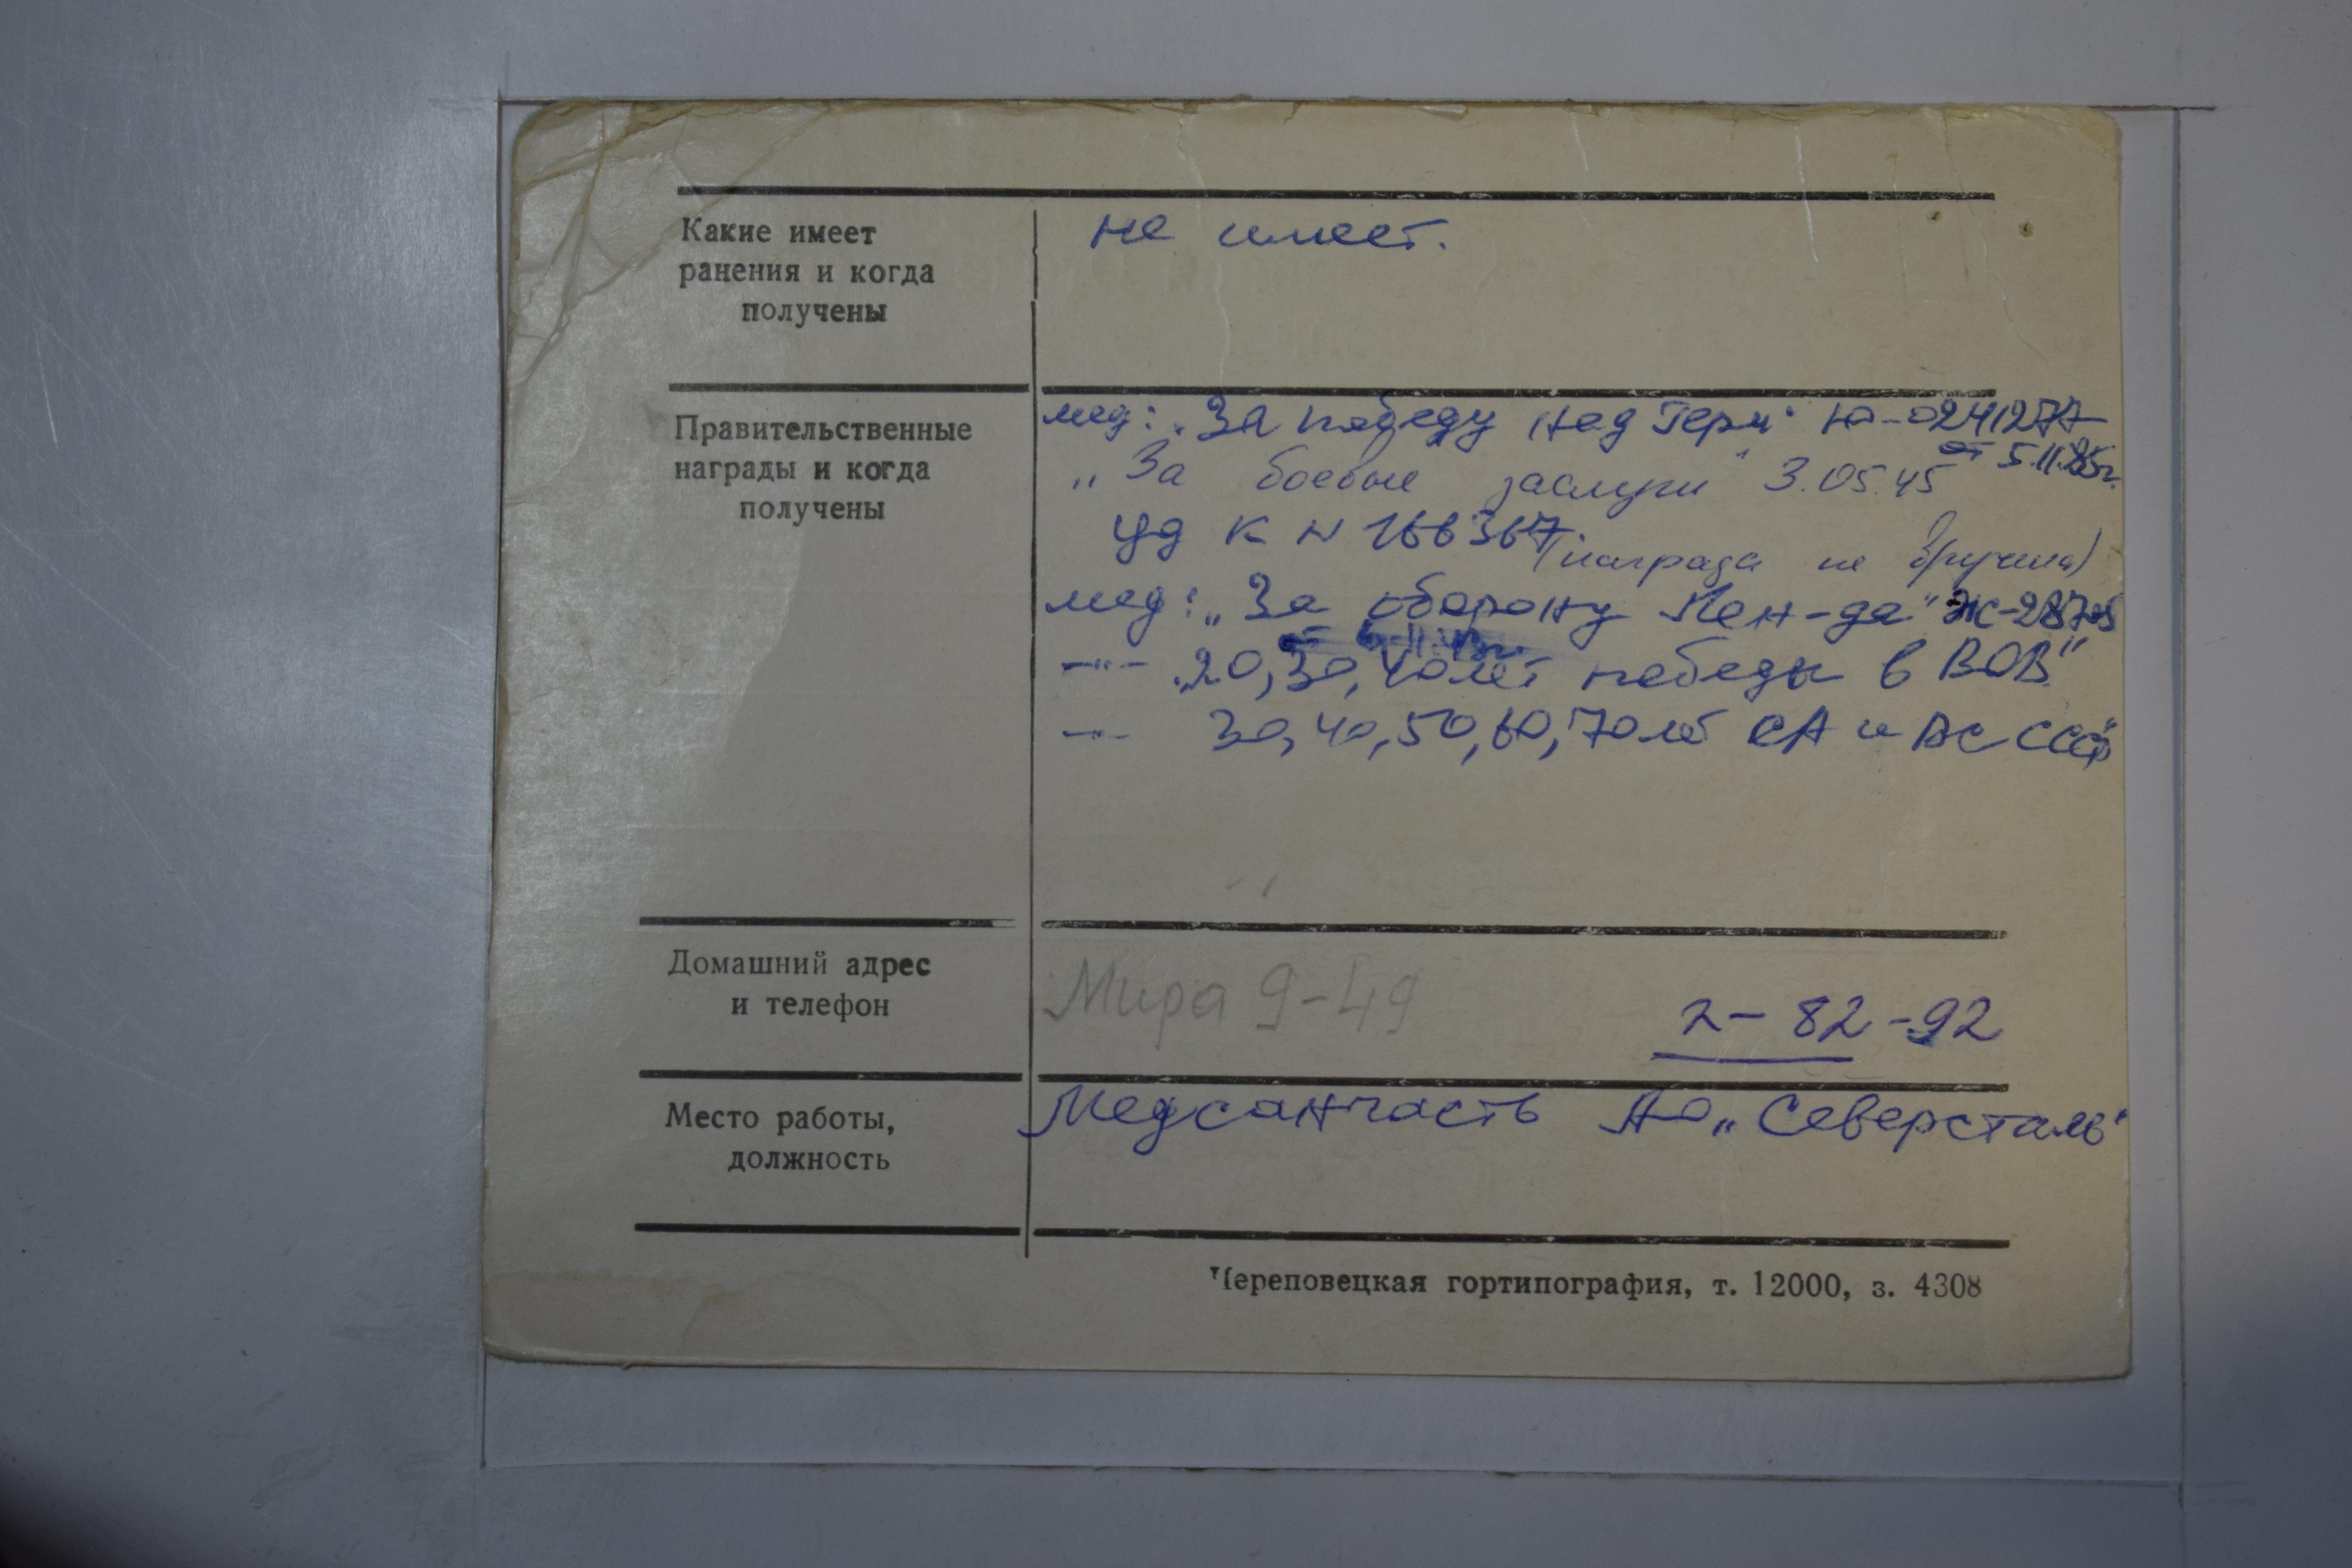 Какие имеет
ранения и когда
получены
не имеет.
Правительственные
награды и когда
получены
мед: „За победу над Герм" Ю-0241277
от 5.11.85г.
„За боевые заслуги" 3.05.45
уд К N 166367 (награда не вручена)
мед: „За оборону Лен-да" Ж-
от 6.11.43г.
—"— „20, 30, 40 лет победы в ВОВ"
—"— 30, 40, 50, 60, 70 лет СА и ВС СССР"
Домашний адрес
и телефон
Мира 9-49
2-82-92
Место работы,
должность
Медсанчасть АО „Северсталь"
Череповецкая гортипография, т. 12000, з. 4308